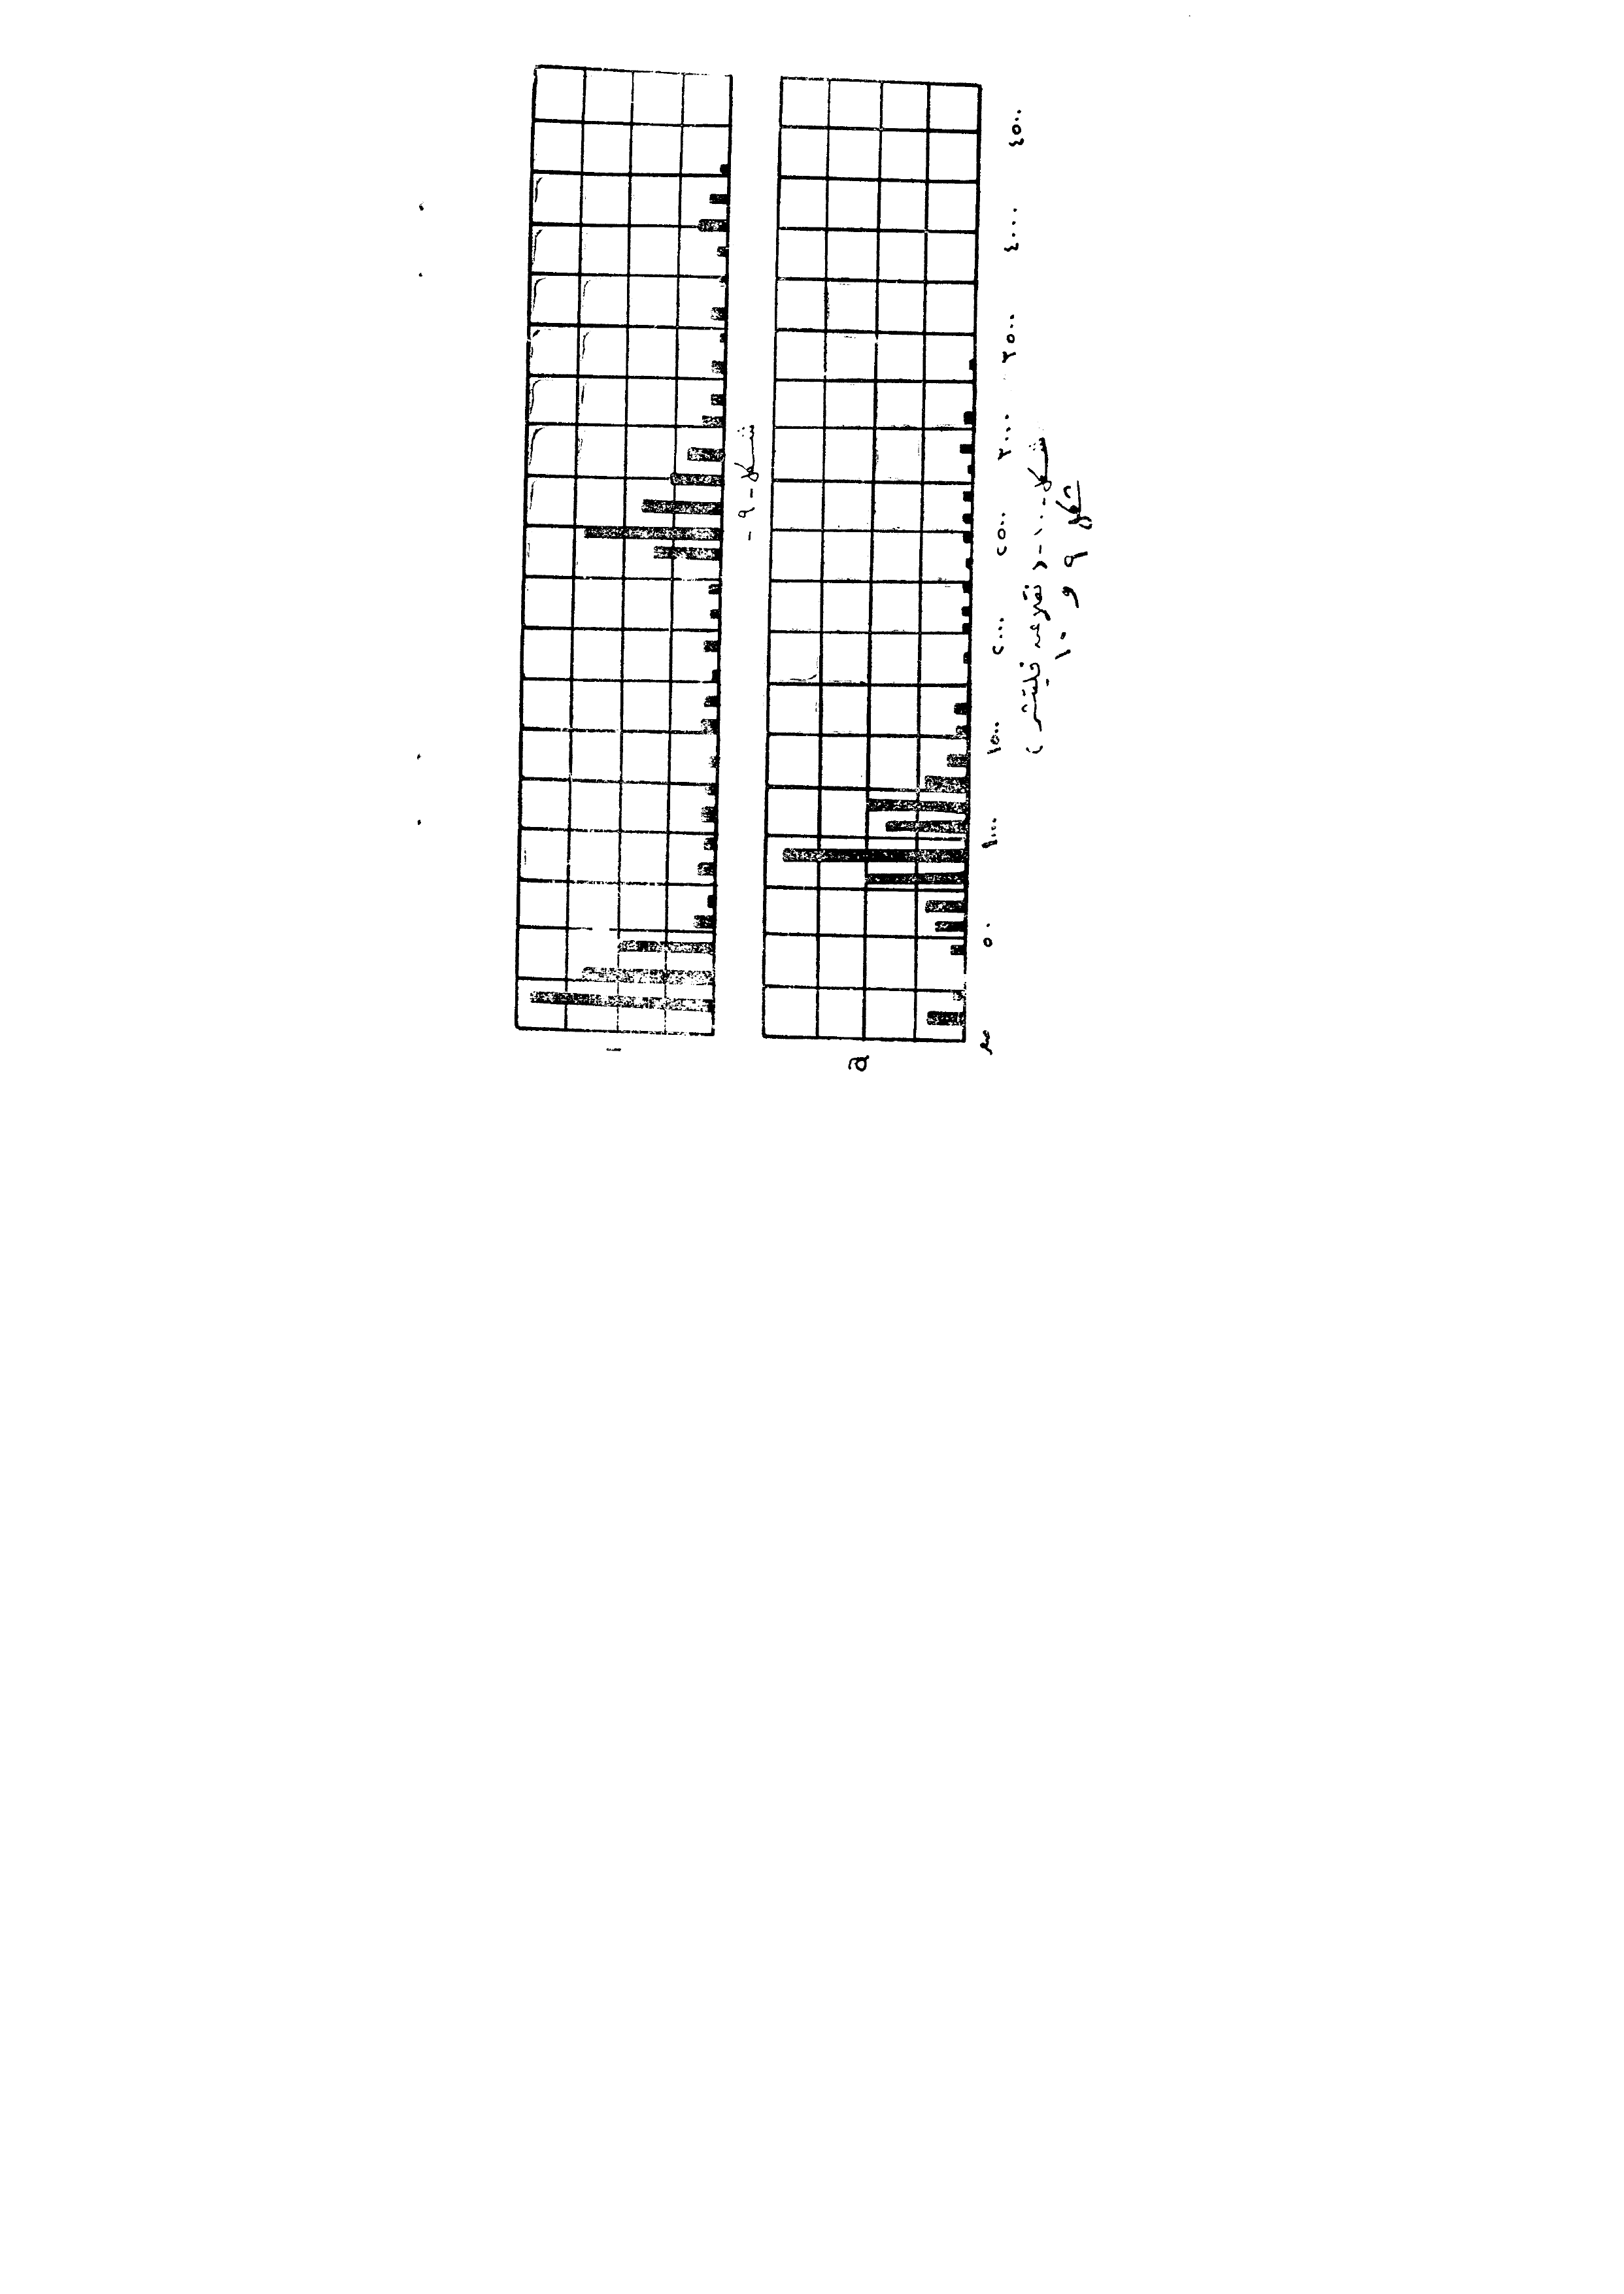 شكل - ٩ -
a
٥٠ ١٠٠٠ ١٥٠٠ ٢٠٠٠ ٢٥٠٠ ٣٠٠٠ ٣٥٠٠ ٤٠٠٠ ٤٥٠٠
شكل - ١٠ - ( نقلا عن فليتشر )
شكل ٩ و ١٠